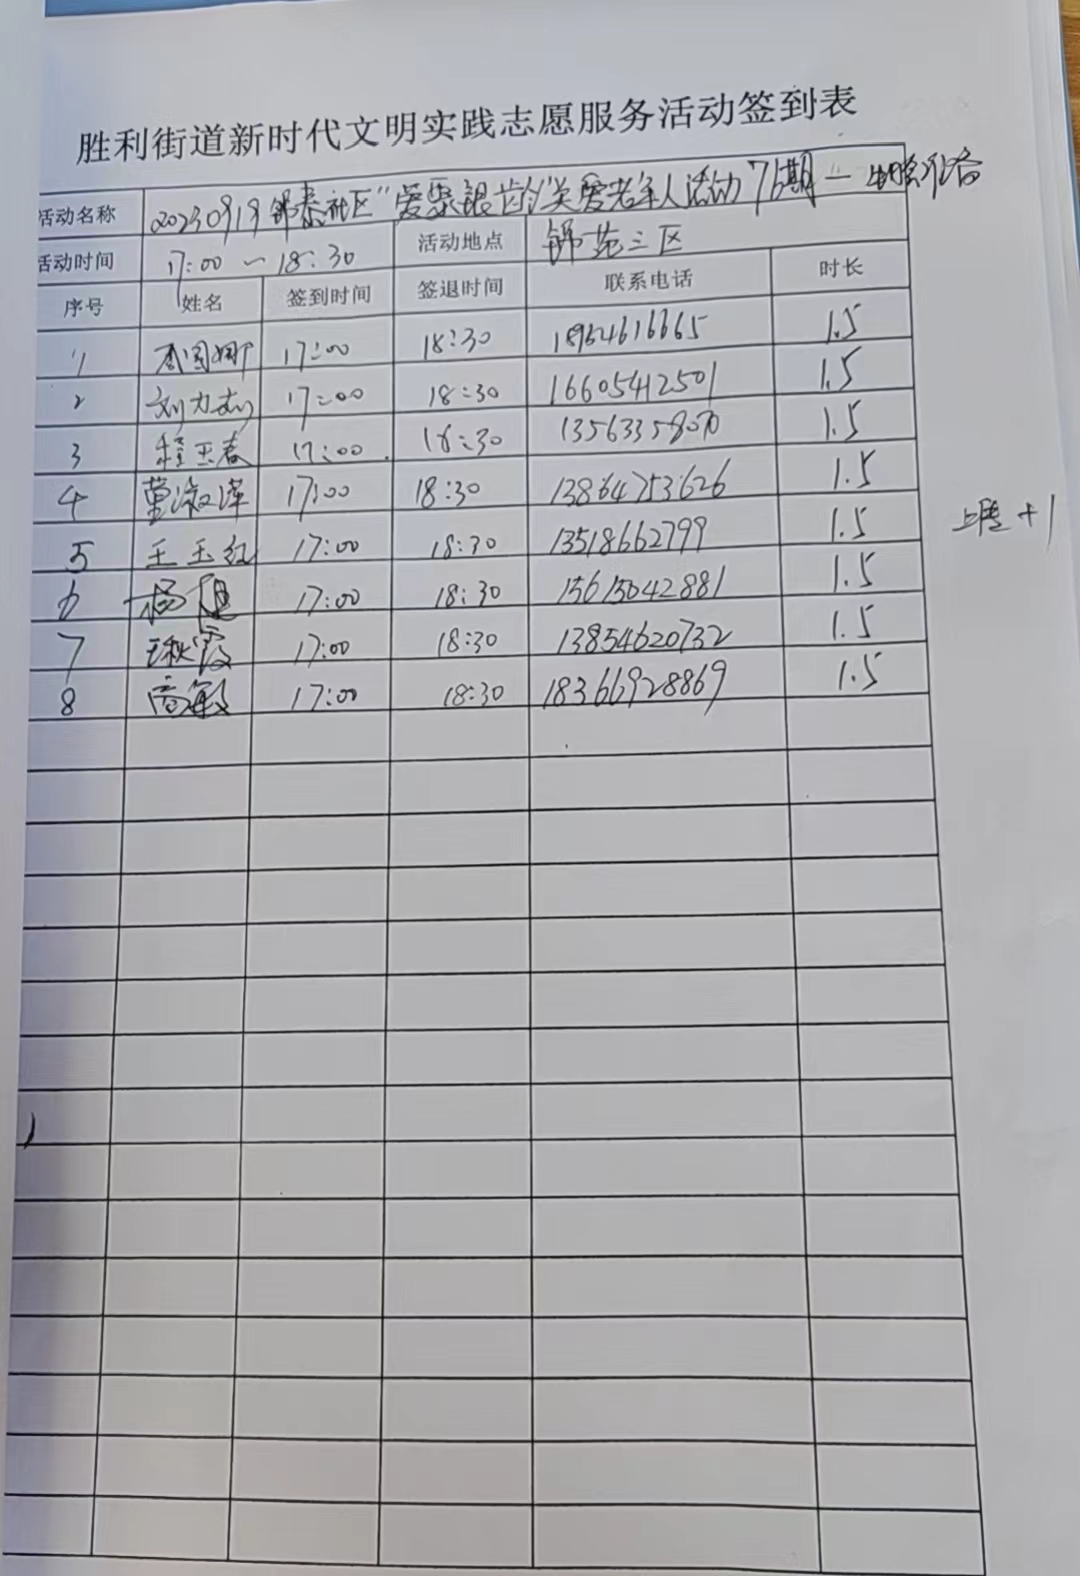 胜利街道新时代文明实践志愿服务活动签到表
活动名称 20230919锦泰社区“爱聚银龄”关爱老年人活动76期一
活动时间 17:00-18:30 活动地点 锦苑三区
序号 姓名 签到时间 签退时间 联系电话 时长
1 17:00 18:30 18964616665 1.5
2 17:00 18:30 16605412501 1.5
3 程玉春 17:00 18:30 13563358070 1.5
4 董淑泽 17:00 18:30 13864753626 1.5
+1
5 王玉红 17:00 18:30 13518662799 1.5
6 杨 17:00 18:30 15615042881 1.5
7 王秋霞 17:00 18:30 13854620732 1.5
8 高敏 17:00 18:30 18366928869 1.5